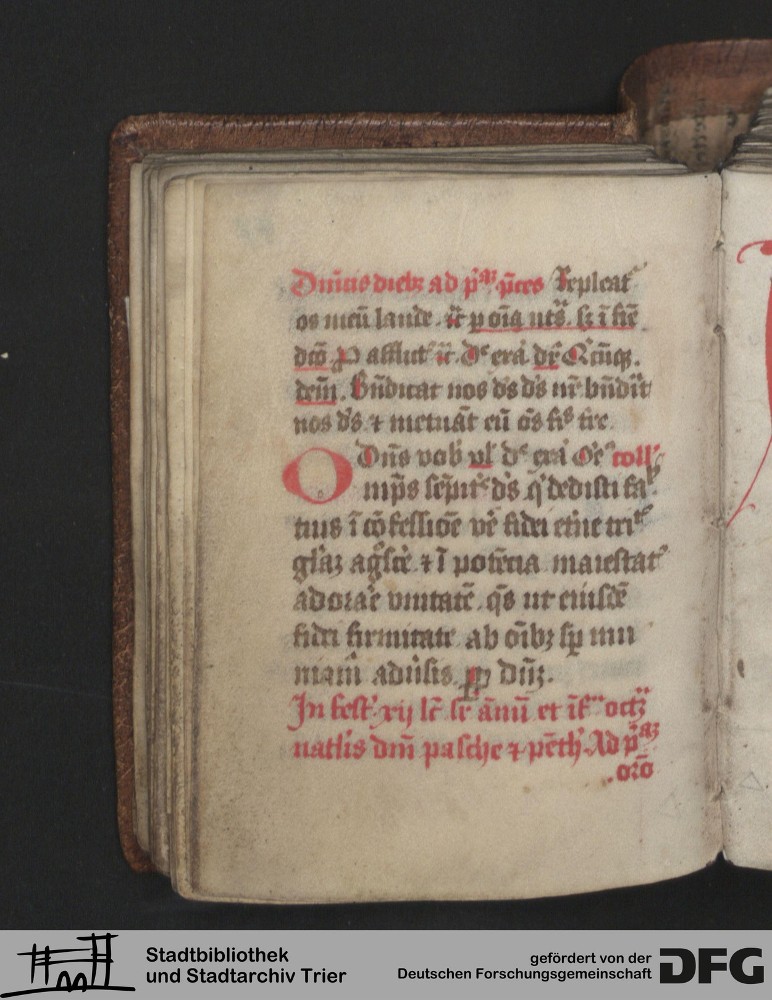 Dn̄icis dieb⁊ ad p̄ᵃᵐ p̄ces Repleat᷑
os meū laude. ut̄ p oīa uts̄. s⁊ ī fīē
dcō P afflict᷑ ut̄ D᷑ erā dr̄ Q̄cūq.
dem̄. Bn̄dicat nos d's d's nr̄ bn̄dīt
nos d's ⁊ metuāt eū oēs fīs tre.
Dn̄s vob̄ ul̄ D᷑ erā Or̄ coll᷑
Omp̄s sēpit᷑ d's q̄ dedisti fa
tuis ī cōfessiōe vē fidei et̄ne trīt᷑
glaz aḡsce ⁊ ī potēcia maiestat᷑
adorare vnitatē q̄s ut eiusdē
fidei firmitate ab oīb⁊ sp̄ mu
niam̄ adūsis P dn̄⁊.
In fest᷑ xij lc̄ sr̄ ānū et īf᷑ oct⁊
natl̄is dn̄i pasche ⁊ pēth᷑ Ad p̄ᵃᵐ
.orō
Stadtbibliothek
und Stadtarchiv Trier
gefördert von der
Deutschen Forschungsgemeinschaft
DFG